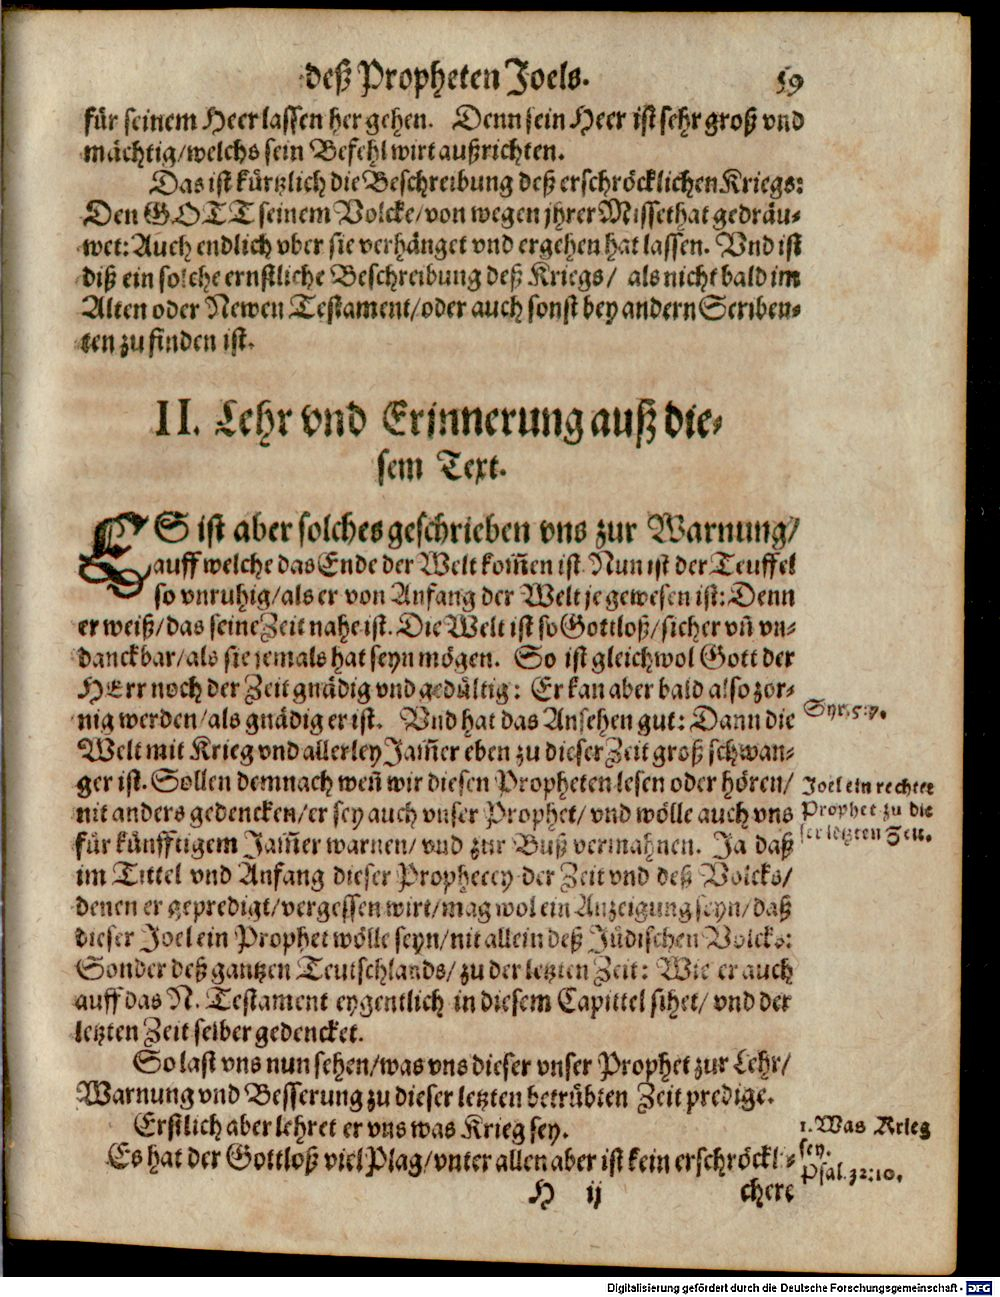 deß Propheten Joels. 59
für seinem Heer lassen her gehen. Denn sein Heer ist sehr groß vnd
mächtig/welchs sein Befehl wirt außrichten.
Das ist kürtzlich die Beschreibung deß erschröcklichen Kriegs:
Den GOTT seinem Volcke/von wegen jhrer Missethat gedräu-
wet: Auch endlich vber sie verhänget vnd ergehen hat lassen. Vnd ist
diß ein solche ernstliche Beschreibung deß Kriegs/ als nicht bald im
Alten oder Newen Testament/oder auch sonst bey andern Scriben-
ten zu finden ist.
II. Lehr vnd Erjnnerung auß die-
sem Text.
ES ist aber solches geschrieben vns zur Warnung/
auff welche das Ende der Welt kom̃en ist. Nun ist der Teuffel
so vnruhig/als er von Anfang der Welt je gewesen ist: Denn
er weiß/das seine Zeit nahe ist. Die Welt ist so Gottloß/sicher vñ vn-
danckbar/als sie jemals hat seyn mögen. So ist gleichwol Gott der
HErr noch der Zeit gnädig vnd gedültig: Er kan aber bald also zor-
nig werden/als gnädig er ist. Vnd hat das Ansehen gut: Dann die
Syr. 5:7.
Welt mit Krieg vnd allerley Jam̃er eben zu dieser Zeit groß schwan-
ger ist. Sollen demnach weñ wir diesen Propheten lesen oder hören/
nit anders gedencken/er sey auch vnser Prophet/ vnd wölle auch vns
für künfftigem Jam̃er warnen/ vnd zur Buß vermahnen. Ja daß
Joel ein rechter
Prophet zu die
ser letzten Zeit.
im Tittel vnd Anfang dieser Prophecey der Zeit vnd deß Volcks/
denen er gepredigt/vergessen wirt/mag wol ein Anzeigung seyn/daß
dieser Joel ein Prophet wölle seyn/nit allein deß Jüdischen Volcks:
Sonder deß gantzen Teutschlands/ zu der letzten Zeit: Wie er auch
auff das N. Testament eygentlich in diesem Capittel sihet/ vnd der
letzten Zeit selber gedencket.
So last vns nun sehen/was vns dieser vnser Prophet zur Lehr/
Warnung vnd Besserung zu dieser letzten betrübten Zeit predige.
Erstlich aber lehret er vns was Krieg sey.
1. Was Krieg
sey.
Psal. 32:10.
Es hat der Gottloß viel Plag/vnter allen aber ist kein erschröckli-
H ij chere
Digitalisierung gefördert durch die Deutsche Forschungsgemeinschaft - DFG